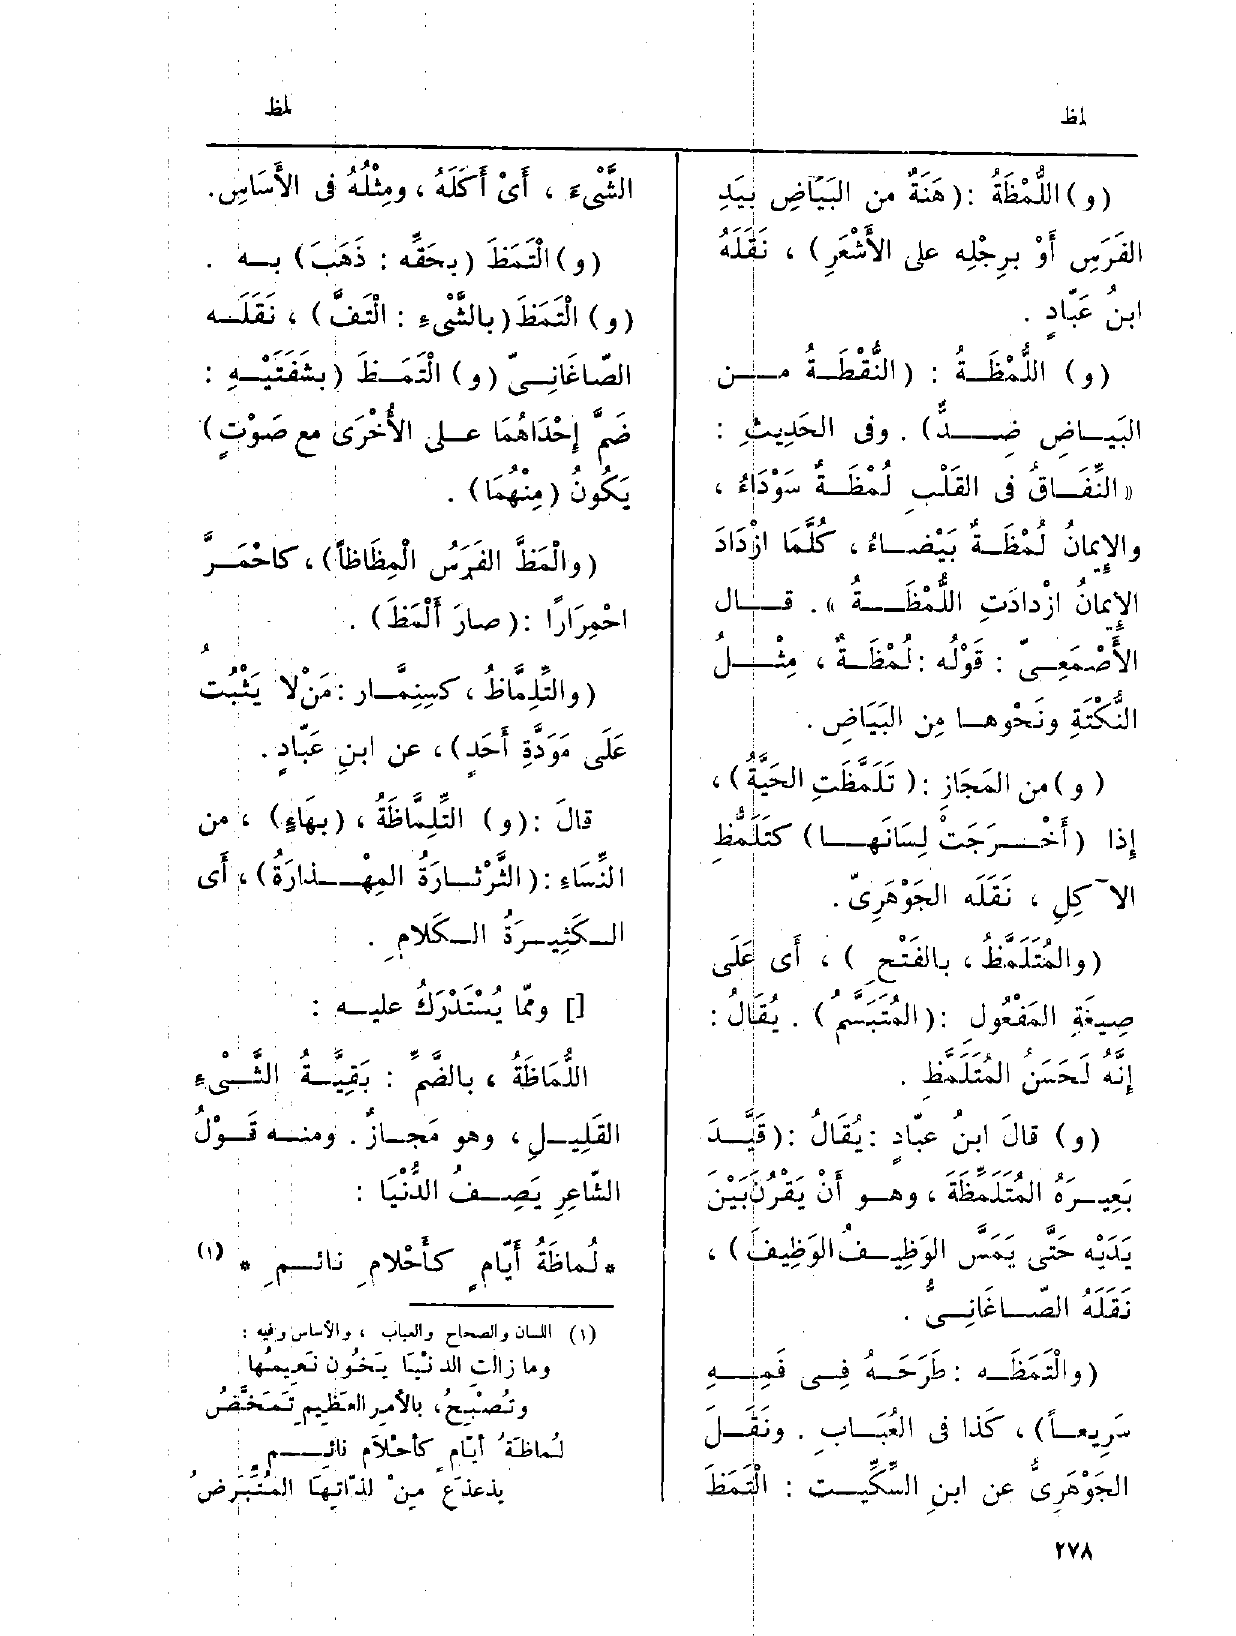 لمظ
لمظ
(و) اللُّمْظَةُ : (هَنَةٌ من البَيَاضِ بِيَدِ
الفَرَسِ أَوْ بِرِجْلِه على الأَشْعَرِ) ، نَقَلَهُ
ابنُ عَبّادٍ .
(و) اللُّمْظَةُ : (النُّقْطَةُ من
البَيَاضِ ضِدٌّ) . وفى الحَدِيثِ :
« النِّفَاقُ فى القَلْبِ لُمْظَةٌ سَوْدَاءُ ،
والإِيمانُ لُمْظَةٌ بَيْضَاءُ ، كُلَّمَا ازْدَادَ
الإِيمانُ ازْدادَتِ اللُّمْظَةُ » . قال
الأَصْمَعِىّ : قَوْلُه : لُمْظَةٌ ، مِثْلُ
النُّكْتَةِ ونَحْوها مِن البَيَاضِ .
(و) من المَجَازِ : (تَلَمَّظَتِ الحَيَّةُ) ،
إِذا (أَخْرَجَتْ لِسَانَها) كتَلَمُّظِ
الآكِلِ ، نَقَلَه الجَوْهَرِىّ .
(والمُتَلَمَّظُ ، بالفَتْحِ) ، أَى عَلَى
صِيغَةِ المَفْعُولِ : (المُتَبَسَّمُ) . يُقَالُ :
إِنَّهُ لَحَسَنُ المُتَلَمَّظِ .
(و) قالَ ابنُ عبّادٍ : يُقَالُ : (قَيَّدَ
بَعِيرَهُ المُتَلَمِّظَةَ ، وهو أَنْ يَقْرُنَ بَيْنَ
يَدَيْه حَتَّى يَمَسَّ الوَظِيفُ الوَظِيفَ) ،
نَقَلَهُ الصّاغَانِىُّ .
(والْتَمَظَه : طَرَحَهُ فِى فَمِهِ
سَرِيعاً) ، كَذا فى العُبَابِ . ونَقَلَ
الجَوْهَرِىُّ عن ابنِ السِّكِّيت : الْتَمَظَ
الشَّىْءَ ، أَىْ أَكَلَهُ ، ومِثْلُهُ فى الأَسَاسِ .
(و) الْتَمَظَ (بحَقِّه : ذَهَبَ) به .
(و) الْتَمَظَ (بالشَّىْءِ : الْتَفَّ) ، نَقَلَه
الصّاغَانِىّ (و) الْتَمَظَ (بشَفَتَيْهِ :
ضَمَّ إِحْدَاهُمَا على الأُخْرَى مع صَوْتٍ)
يَكُونُ (مِنْهُمَا) .
(والْمَظَّ الفَرَسُ الْمِظَاظاً) ، كاحْمَرَّ
احْمِرَارًا : (صارَ أَلْمَظَ) .
(والتِّلِمَّاظُ ، كسِنِمَّار : مَنْ لا يَثْبُتُ
عَلَى مَوَدَّةِ أَحَدٍ) ، عن ابنِ عَبّادٍ .
قالَ : (و) التِّلِمَّاظَةُ ، (بهَاءٍ) ، من
النِّسَاءِ : (الثَّرْثارَةُ المِهْذارَةُ) ، أَى
الكَثِيرَةُ الكَلامِ .
[] وممّا يُسْتَدْرَكُ عليه :
اللُّمَاظَةُ ، بالضَّمِّ : بَقِيَّةُ الشَّىْءِ
القَلِيلِ ، وهو مَجازٌ . ومنه قَوْلُ
الشّاعِرِ يَصِفُ الدُّنْيَا :
* لُمَاظَةُ أَيّامٍ كَأَحْلامِ نائِمِ * (١)
(١) اللسان والصحاح والعباب ، والأساس وفيه :
وما زالت الدنْيَا يَخُون نَعِيمُها
وتُصْبِحُ، بالأمرِ العَظِيمِ تَمَخَّضُ
لُماظَةُ أيّامٍ كأحْلَامِ نائِمٍ
يذعذَعُ مِنْ لذّاتِهَا المُتَبَرِّضُ
٢٧٨